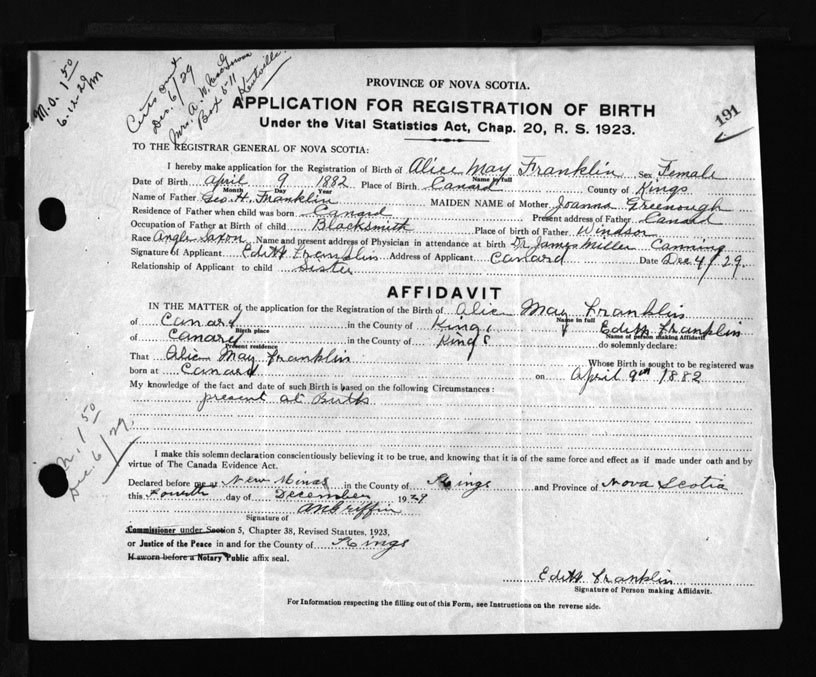 M.O. 1 50
6-12-29 M
Certs out
Dec. 6/29
Mrs. A. W.
Box 511
Kentville
191
PROVINCE OF NOVA SCOTIA.
APPLICATION FOR REGISTRATION OF BIRTH
Under the Vital Statistics Act, Chap. 20, R. S. 1923.
TO THE REGISTRAR GENERAL OF NOVA SCOTIA:
I hereby make application for the Registration of Birth of Alice May Franklin Sex Female
Name in full
Date of Birth April 9 1882 Place of Birth Canard County of Kings
Month Day Year
Name of Father Geo. H. Franklin MAIDEN NAME of Mother Joanna Greenough
Residence of Father when child was born Canard Present address of Father Canard
Occupation of Father at Birth of child Blacksmith Place of birth of Father Windsor
Race Anglo Saxon Name and present address of Physician in attendance at birth Dr. James Miller Canning
Signature of Applicant Edith Franklin Address of Applicant Canard Date Dec 4/29.
Relationship of Applicant to child Sister
AFFIDAVIT
IN THE MATTER of the application for the Registration of the Birth of Alice May Franklin
Name in full
of Canard in the County of Kings Edith Franklin
Birth place Name of person making Affidavit
of Canard in the County of Kings do solemnly declare:
Present residence
That Alice May Franklin Whose Birth is sought to be registered was
born at Canard on April 9th 1882
My knowledge of the fact and date of such Birth is based on the following Circumstances:
present at Birth
M. 1 50
Dec. 6/29.
I make this solemn declaration conscientiously believing it to be true, and knowing that it is of the same force and effect as if made under oath and by
virtue of The Canada Evidence Act.
Declared before me at New Minas in the County of Kings and Province of Nova Scotia
this Fourth day of December 1929
AN Griffin
Signature of
Commissioner under Section 5, Chapter 38, Revised Statutes, 1923,
or Justice of the Peace in and for the County of Kings
If sworn before a Notary Public affix seal.
Edith Franklin
Signature of Person making Affidavit.
For Information respecting the filling out of this Form, see Instructions on the reverse side.